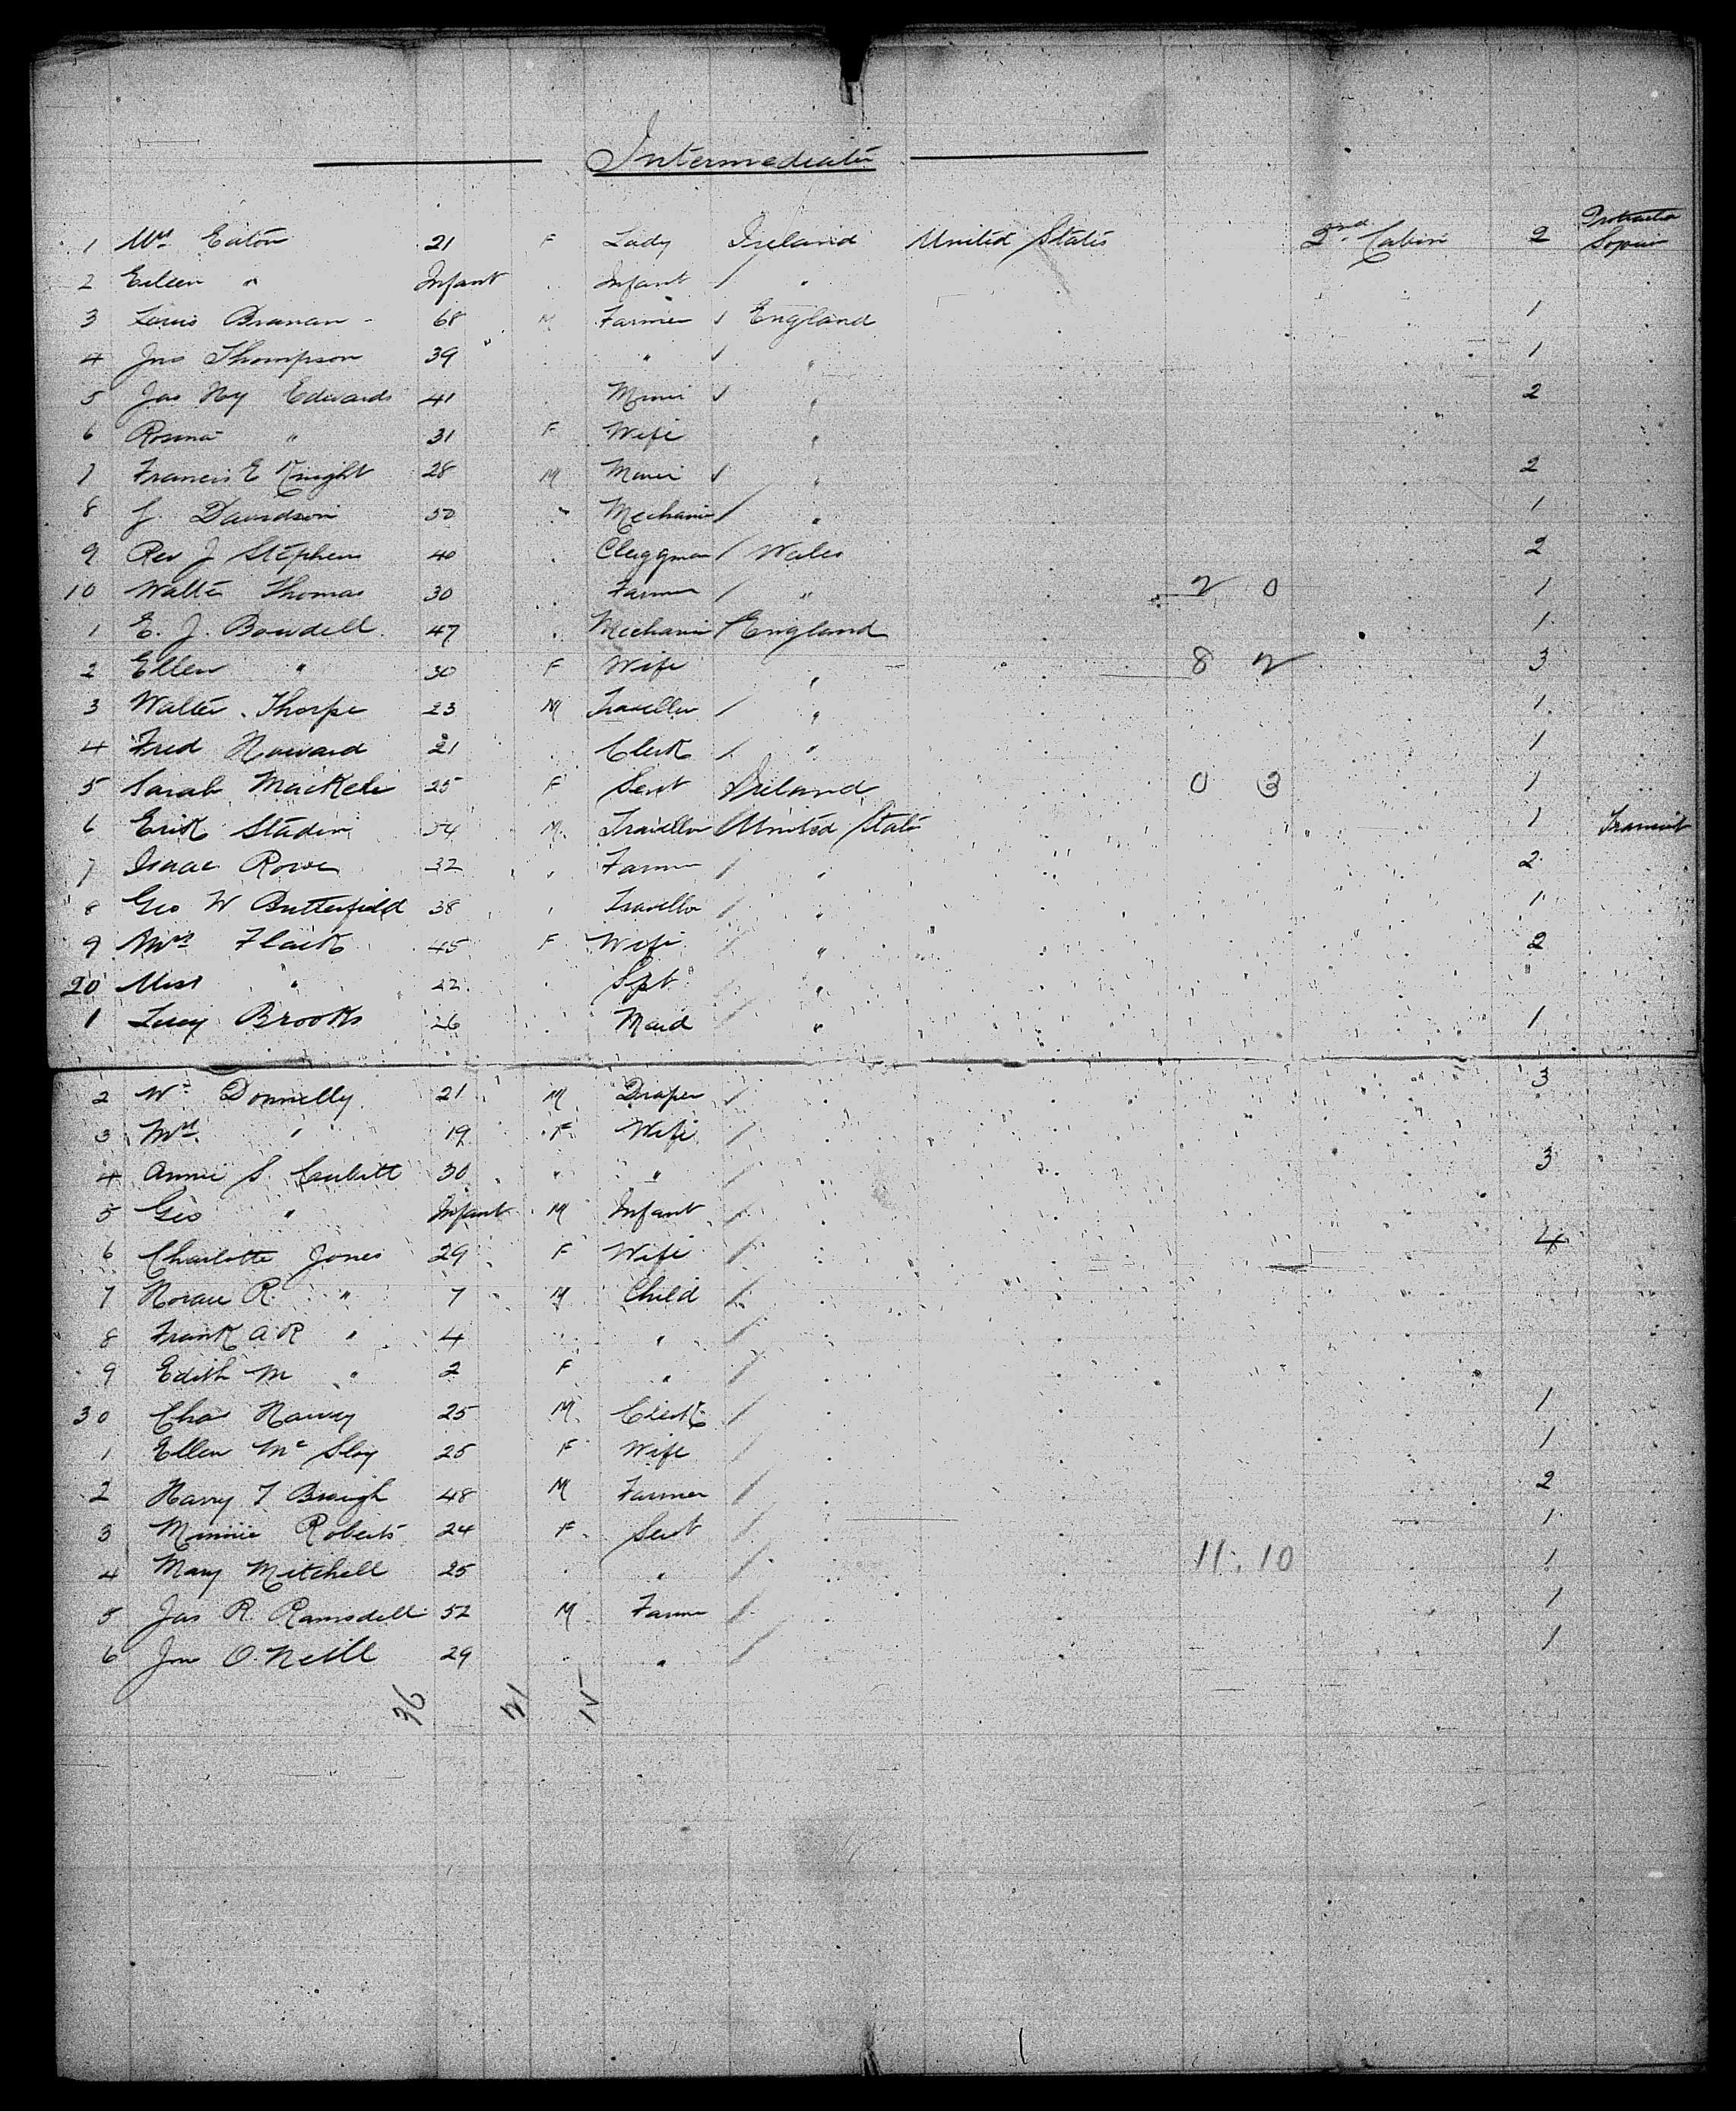 Intermediate
1 Mrs Eaton 21 F Lady Ireland United States 2nd Cabin 2 Protracted Sojourn
2 Eileen " Infant Infant / "
3 Louis Branan 68 M Farmer / England 1
4 Jno Thompson 39 " / " 1
5 Jas Hy Edwards 41 Miner / " 2
6 Rosina " 31 F Wife "
7 Francis E Knight 28 M Miner / " 2
8 J. Davidson 50 " Mechanic / " 1
9 Rev J Stephens 40 Clergyman / Wales 2
10 Walter Thomas 30 Farmer / " 2 0 1
1 E. J. Bowdell 47 Mechanic / England 1
2 Ellen " 30 F Wife " 8 2 3
3 Walter Thorpe 23 M Traveller / " 1
4 Fred Howard 21 Clerk / " 1
5 Sarah 25 F Servt Ireland 0 3 1
6 Erik 54 M Traveller United States 1 Transit
7 Isaac Rowe 32 Farmer / " 2
8 Geo W Butterfield 38 Traveller / " 1
9 Mrs Flack 45 F Wife / " 2
20 Miss " 22 Spt " "
1 Lucy Brooks 26 Maid / " 1
2 Wm Donnelly 21 M Draper / 3
3 Mrs " 19 F Wife /
4 Annie S. Cubitt 30 " " / 3
5 Geo " Infant M Infant /
6 Charlotte Jones 29 F Wife / 4
7 Horace R " 7 M Child /
8 Frank A R " 4 " /
9 Edith M " 2 F " /
30 Chas Harvey 25 M Clerk / 1
1 Ellen Mc Sloy 25 F Wife / 1
2 Harry T Brough 48 M Farmer / 2
3 Minnie Roberts 24 F Servt / 1
4 Mary Mitchell 25 " / 11. 10 1
5 Jas R. Ramsdell 52 M Farmer / 1
6 Jno O.Neill 29 " / 1
36 21 15